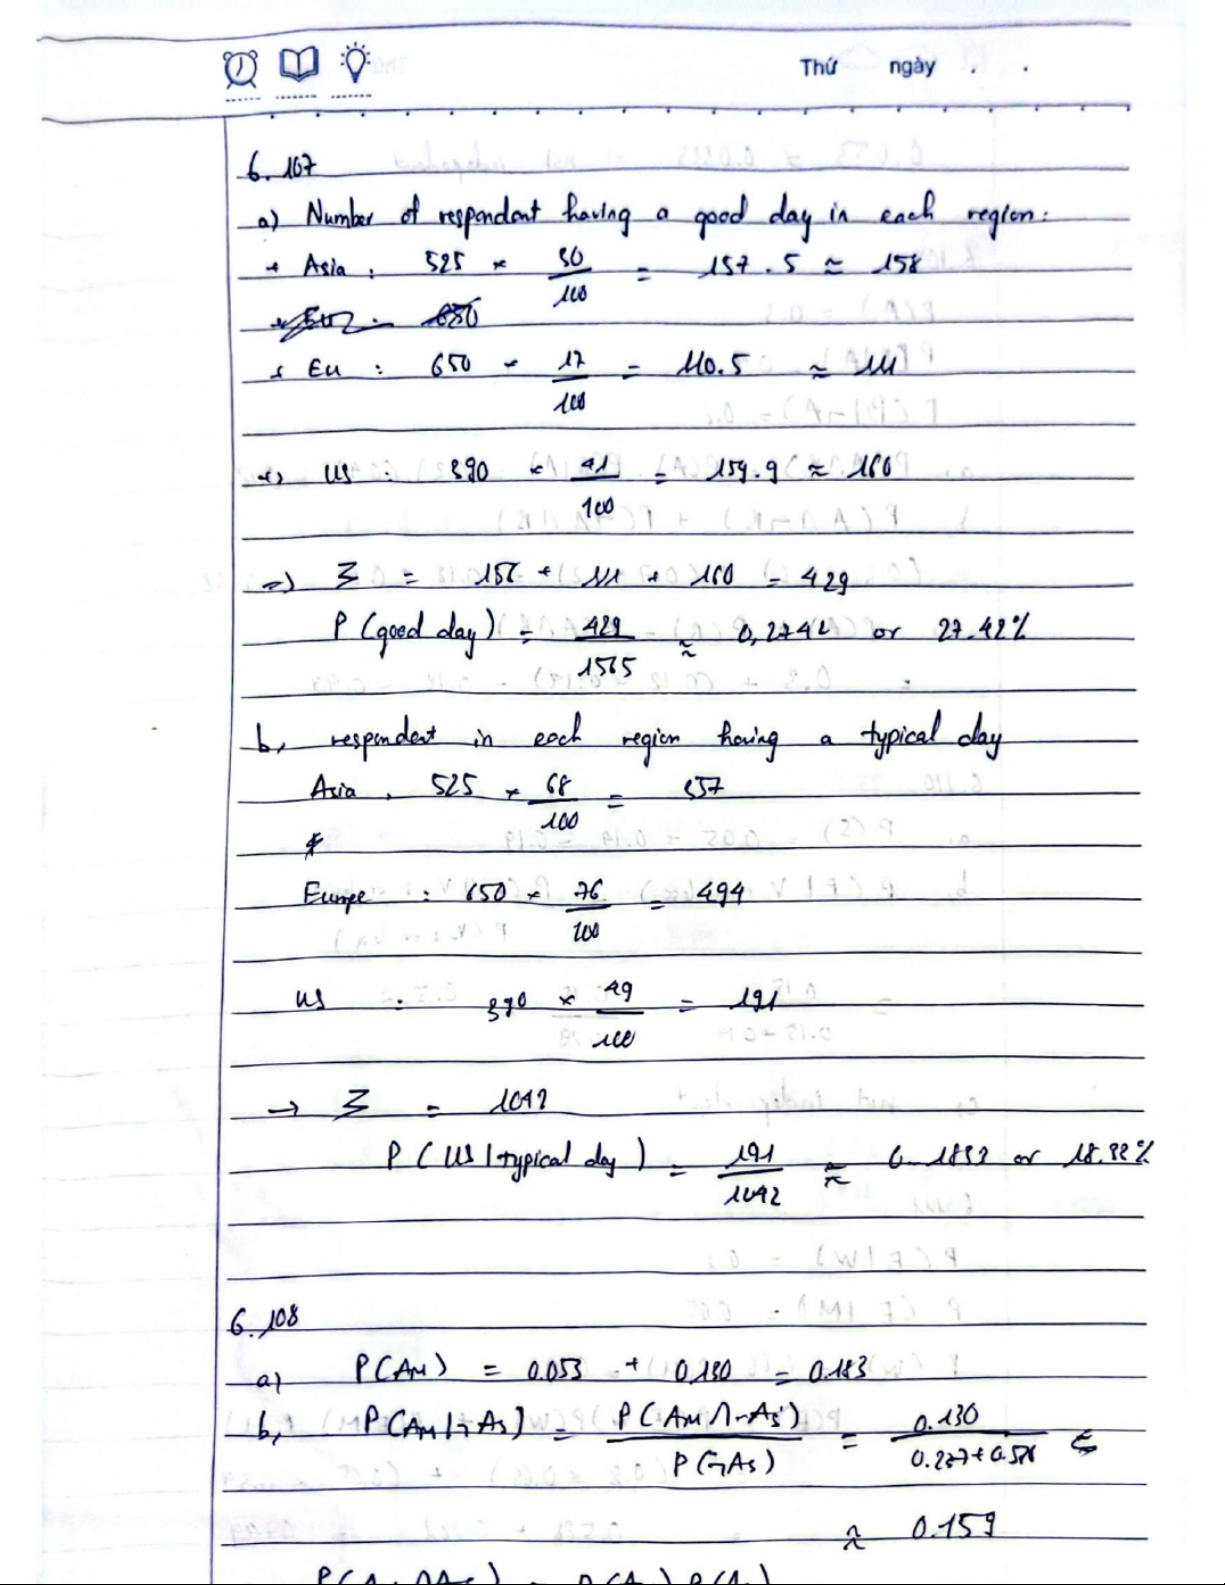 Thứ ngày . .
6.107
a) Number of respondent having a good day in each region:
+ Asia : 525 × 30/100 = 157.5 ≈ 158
+ EU : 650
+ EU : 650 × 17/100 = 110.5 ≈ 111
+) US : 390 × 41/100 = 159.9 ≈ 160
=) Σ = 158 + 111 + 160 = 429
P (good day) = 429/1565 ≈ 0,2742 or 27.42%
b, respondent in each region having a typical day
Asia : 525 × 68/100 = 357
Europe : 650 × 76/100 = 494
US : 390 × 49/100 = 191
→ Σ = 1042
P ( US | typical day ) = 191/1042 ≈ 0.1833 or 18.33%
6.108
a) P(AM) = 0.053 + 0.130 = 0.183
b, P(AM|¬AS) = P(AM ∩ ¬AS)/P(¬AS) = 0.130/
≈ 0.159